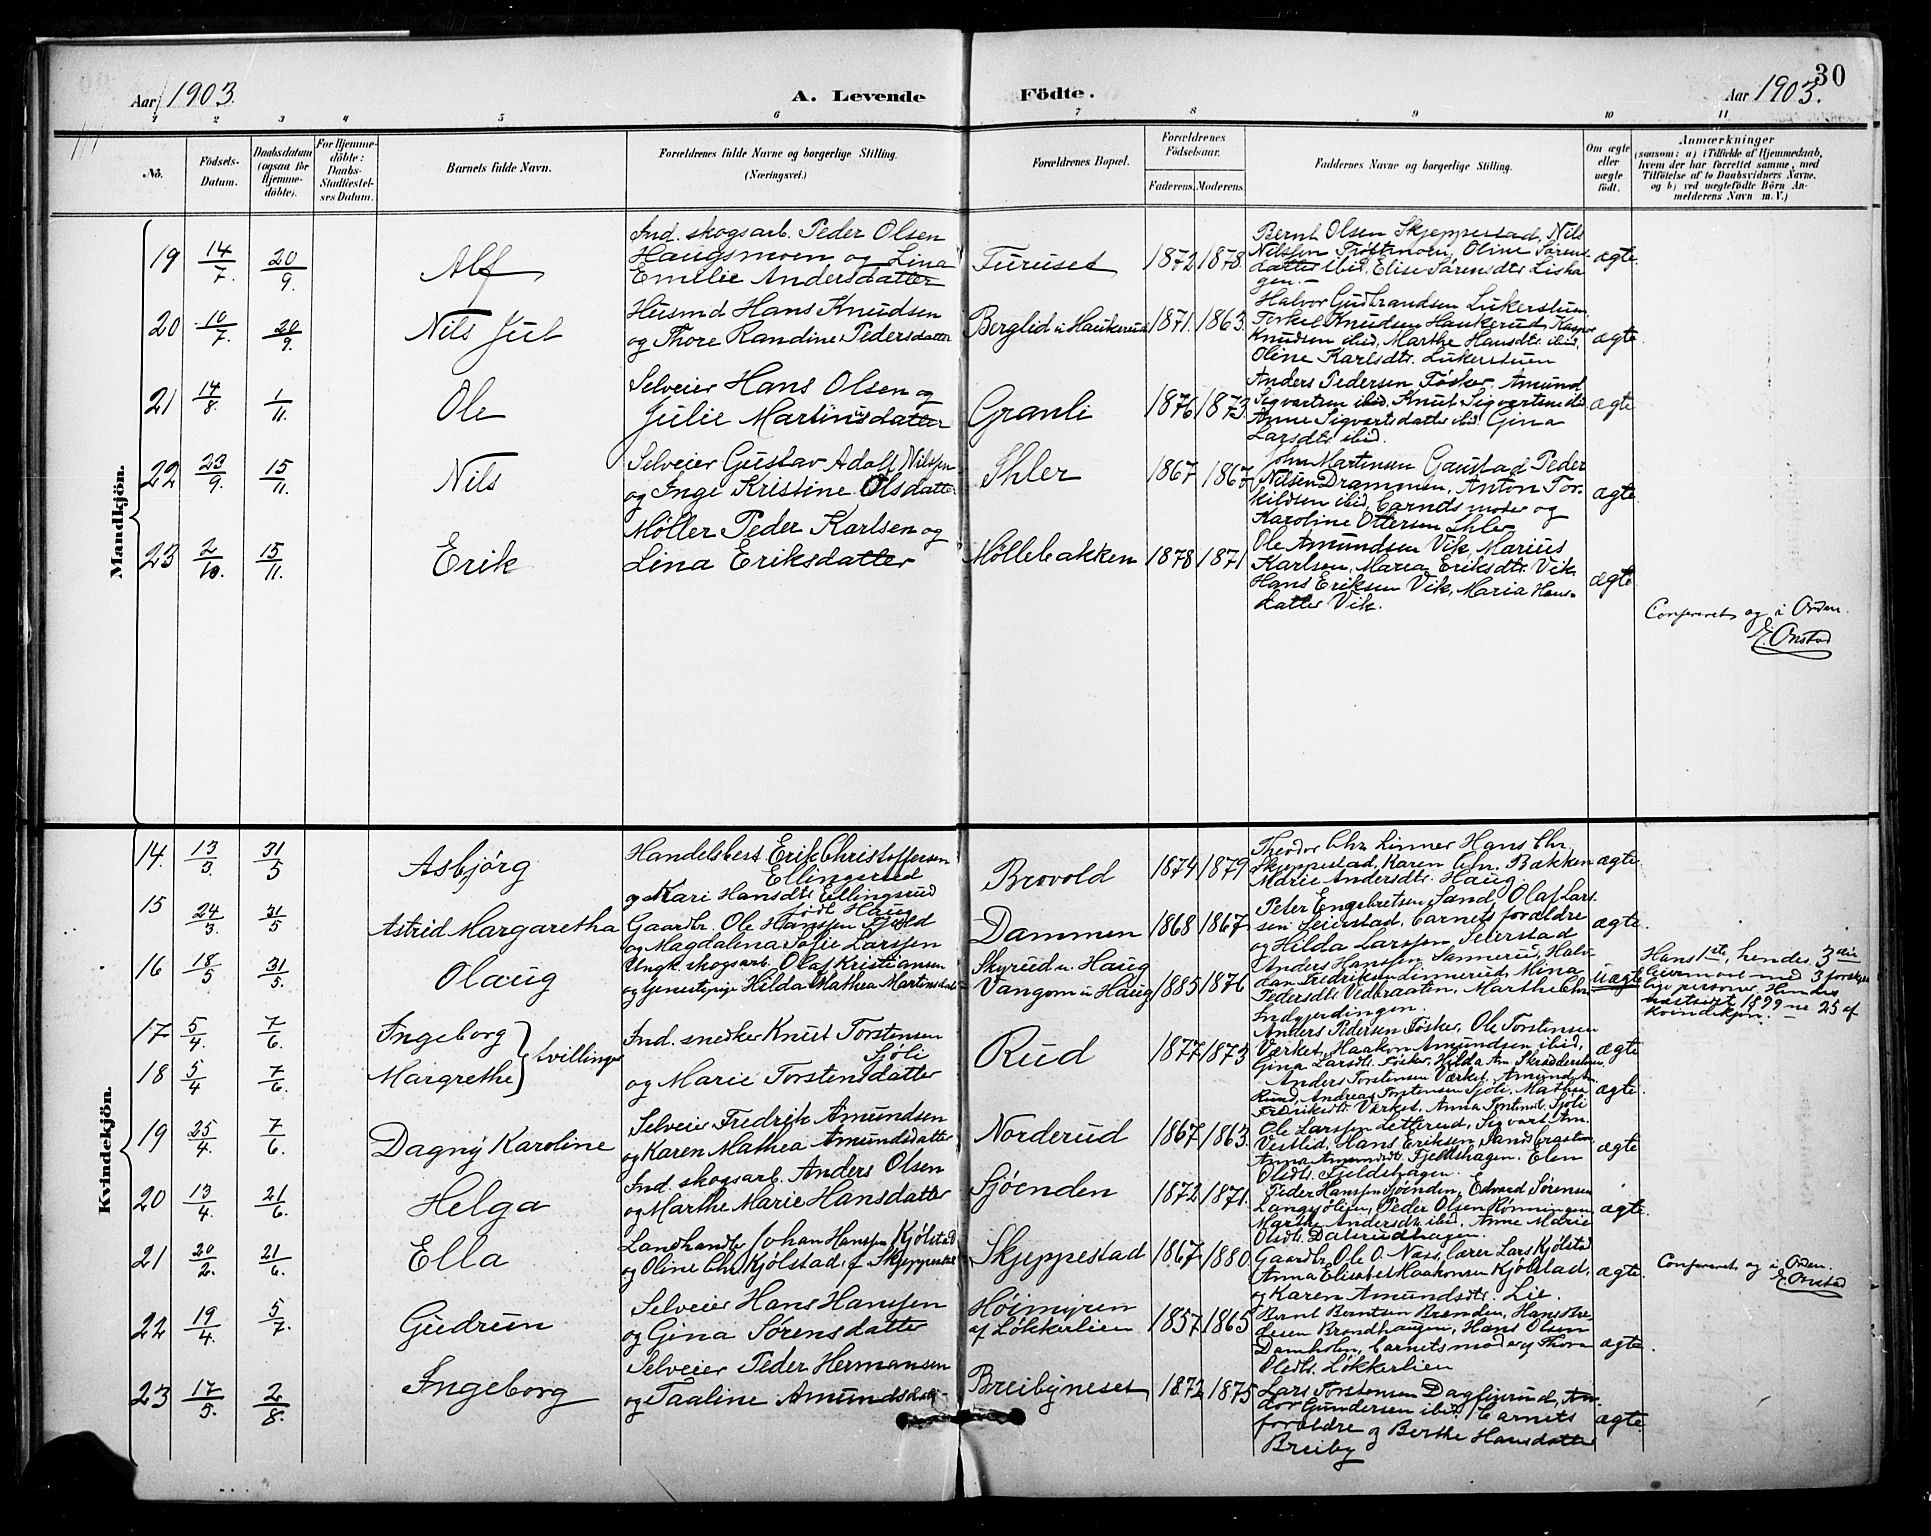 30
Aar 1903.
A. Levende Födte.
Aar 1903.
1 2 3 4 5 6 7 8 9 10 11
No.
Födsels-Datum.
Daabsdatum (ogsaa for Hjemme-döbte).
For Hjemme-döbte: Daabs-Stadfæstel-ses Datum.
Barnets fulde Navn.
Forældrenes fulde Navne og borgerlige Stilling. (Næringsvei.)
Forældrenes Bopæl.
Forældrenes Födselsaar.
Faderens. Moderens.
Faddernes Navne og borgerlige Stilling.
Om ægte eller uægte født.
Anmærkninger
(saasom: a) i Tilfælde af Hjemmedaab, hvem der har forrettet samme, med Tilföielse af to Daabsvidners Navne, og b) ved uægtefödte Börn An-melderens Navn m. V.)
Mandkjön.
19 14/7. 20/9. Alf
Ind. skogsarb. Peder Olsen
Haugsmoen og Lina
Emilie Andersdatter
Furuset 1872 1878.
Bernt Olsen Skjeppestad, Nils
Nilssen Trøftmoen, Oline Sørens-
datter ibid, Elise Sørensdtr. Lisha-
gen.
ægte.
20 10/7. 20/9. Nils Jul
Husmd Hans Knudsen
og Thore Randine Pedersdatter
Berglid u. Haukerud 1871. 1863.
Halvor Gudbrandsen Lukerstuen
Torkel Knudsen Haukerud, Kasper
Knudsen ibid, Marthe Hansdtr. ibid,
Oline Karlsdtr. Lukerstuen
ægte.
21 14/8. 1/11. Ole
Selveier Hans Olsen og
Julie Martinisdatter
Granli 1876 1873.
Anders Pedersen Føsker, Amund
Sigvartsen ibid. Knut Sigvartsen ibid.
Anne Sigvartsdatter ibid. Gina
Larsdtr. ibid.
ægte.
22 23/9. 15/11. Nils
Selveier Gustav Adolf Nilssen
og Inge Kristine Olsdatter
Ihler 1867 1867
John Martinsen Gaustad Peder
Nilsen Drammen, Anton Tor-
kildsen ibid, barnets moder og
Karoline Ottersen Ihler
ægte.
23 2/10. 15/11. Erik
Møller Peder Karlsen og
Lina Eriksdatter
Møllebakken 1878 1871
Ole Amundsen Vik, Marius
Karlsen, Maria Eriksdtr. Vik
Hans Eriksen Vik, Maria Hans-
datter Vik.
ægte.
Confereret og i Orden.
E. Onstad
Kvindekjön.
14. 13/3. 31/5 Asbjørg
Handelsbest Erik Christoffersen
Ellingsrud
og Kari Hansdtr. Ellingsrud
født Haug
Brovold 1874 1879
Theodor Chr. Linner Hans Chr.
Skjeppestad, Karen Chr. Bækken
Marie Andersdtr. Haug.
ægte.
15 24/3. 31/5 Astrid Margaretha
Gaardbr. Ole Hanssen Fjeld
og Magdalena Sofie Larssen
Dammen 1868 1867
Peter Engebretsen Sand, Olaf Lars-
sen Seierstad, barnets forældre
og Hilda Larssen Seierstad
ægte.
16 18/5 31/5. Olaug
Ungk. skogsarb. Olaf Kristiansen
og tjenestepige Hilda Mathea Martinsdatter
Skyrud u. Haug
Vangom u Haug 1885 1876
Anders Hanssen Sannerud, Halv-
dan Fredriksen Linnerud, Mina
Pedersdtr. Vedbraaten, Marthe Chr.
Indgjerdingen.
uægte
Hans 1ste, hendes 3die
leiermaal med 3 forskjel-
lige personer. Hendes
næstsidst 1899 no 25 af
kvindekjøn.
17 5/4. 7/6. Ingeborg
18 5/4 7/6. Margrethe } tvillinger
Ind. snedker Knut Torstensen
Sjøli
og Marie Torstensdatter
Rud 1877 1873
Anders Pedersen Føsker, Ole Torstensen
Værket, Haakon Amundsen ibid,
Gina Larsdtr. Føsker, Hilda Am. Skrædderstuen
ægte
Anders Torstensen Værket, Amund A.
Rund, Andreas Torstensen Sjøli, Mathea
Fredriksdtr. Værket, Anna Torstensdtr. Sjøli
ægte.
19 25/4. 7/6. Dagny Karoline
Selveier Fredrik Amundsen
og Karen Mathea Amundsdatter
Norderud 1867 1863.
Ole Larssen Letterud, Sigvart Am.
Vestlid, Hans Eriksen Sandbraaten,
Anna Amundsdtr. Fjeldshagen. Elen
Olsdtr. Fjeldshagen.
ægte
20 13/4. 21/6. Helga
Ind. skogsarb. Anders Olsen
og Marthe Marie Hansdatter
Sjøenden 1872 1871.
Peder Hanssen Sjøenden, Edvard Sørensen
Langsjølien, Peder Olsen Rønningen,
Marthe Andersdtr. ibid. Anne Marie
Olsdtr. Dalsrudhagen.
ægte.
21 20/2. 21/6. Ella
Landhandler Johan Hanssen Kjølstad
og Oline Chr. Kjølstad, f. Skjeppestad
Skjeppestad 1867 1880.
Gaardbr. Ole O. Næss, lærer Lars Kjølstad
Anna Elisabet Haakonsen Kjølstad,
og Karen Amundsdtr. Lie.
ægte.
Confereret og i Orden.
E. Onstad
22 19/4. 5/7. Gudrun
Selveier Hans Hanssen
og Gina Sørensdatter
Høimyren
af Løkkerlien 1857 1865
Bernt Berntsen Brenden, Hans Pe-
dersen Brandhaugen, Hans Olsen
Damholen, barnets moder og Thora
Olsdtr. Løkkerlien
ægte.
23 17/5. 2/8. Ingeborg
Selveier Peder Hermansen
og Paaline Amundsdatter
Breibyneset 1872 1875
Lars Torstensen Dagfinrud, An-
dor Gundersen ibid, barnets
forældre og Berthe Hansdatter
Breiby
ægte.